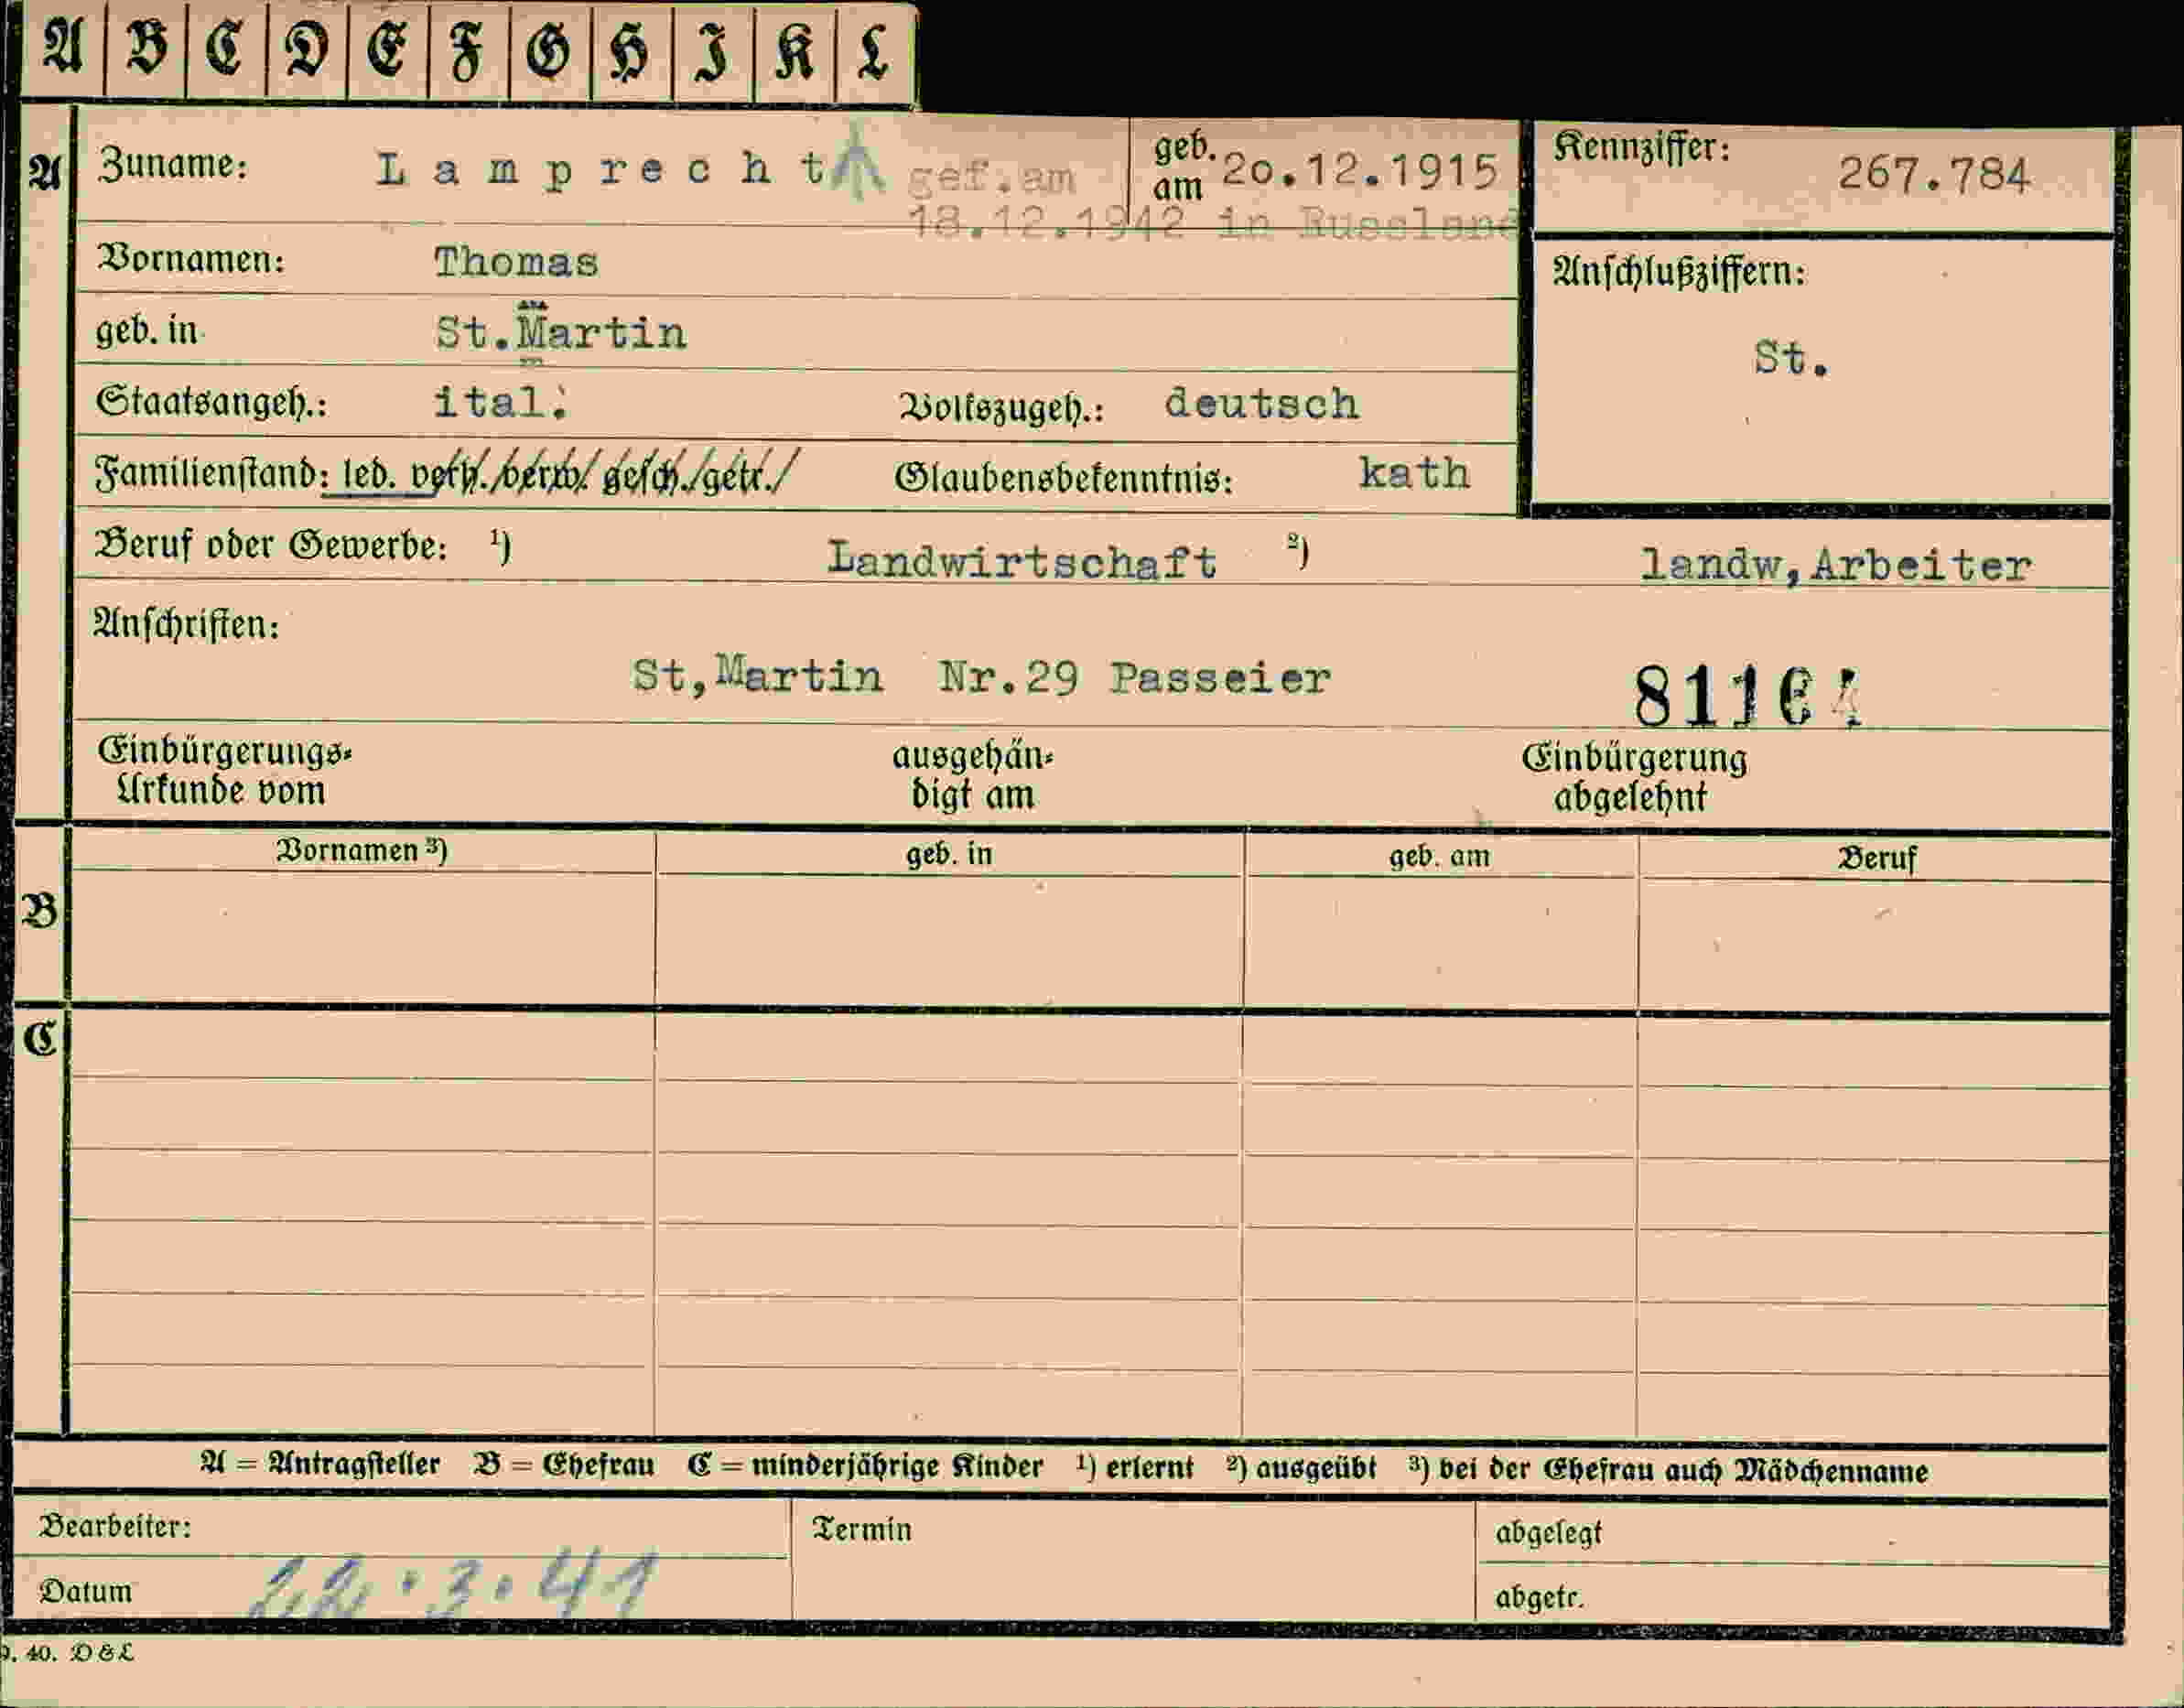 A B C D E F G H I K L
A Zuname: Lamprecht gef.am geb. am 20.12.1915 Kennziffer: 267.784
18.12.1942 in Russland
Vornamen: Thomas Anschlußziffern:
geb. in St.Martin St.
Staatsangeh.: ital. Volkszugeh.: deutsch
Familienstand: led. verh./verw./gesch./getr./ Glaubensbekenntnis: kath
Beruf oder Gewerbe: ¹) Landwirtschaft ²) landw,Arbeiter
Anschriften:
St,Martin Nr.29 Passeier 81164
Einbürgerungs- ausgehän- Einbürgerung
Urkunde vom digt am abgelehnt
Vornamen ³) geb. in geb. am Beruf
B
C
A = Antragsteller B = Ehefrau C = minderjährige Kinder ¹) erlernt ²) ausgeübt ³) bei der Ehefrau auch Mädchenname
Bearbeiter: Termin abgelegt
Datum 22.3.41 abgetr.
40. D & L